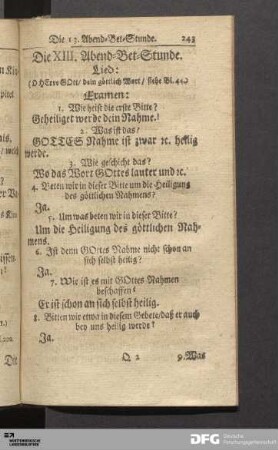 Die 13. Abend-Bet-Stunde. 243
Die XIII. Abend-Bet-Stunde.
Lied:
(O HErre GOtt/ dein göttlich Wort/ siehe Bl. 44.)
Examen:
1. Wie heist die erste Bitte?
Geheiliget werde dein Nahme.
2. Was ist das?
GOTTES Nahme ist zwar ꝛc. heilig
werde.
3. Wie geschicht das?
Wo das Wort GOttes lauter und ꝛc.
4. Beten wir in dieser Bitte um die Heiligung
des göttlichen Nahmens?
Ja.
5. Um was beten wir in dieser Bitte?
Um die Heiligung des göttlichen Nah-
mens.
6. Ist denn GOttes Nahme nicht schon an
sich selbst heilig?
Ja.
7. Wie ist es mit GOttes Nahmen
beschaffen?
Er ist schon an sich selbst heilig.
8. Bitten wir etwa in diesem Gebete/ daß er auch
bey uns heilig werde?
Ja.
Q 2 9. Was
DFG Deutsche
Forschungsgemeinschaft